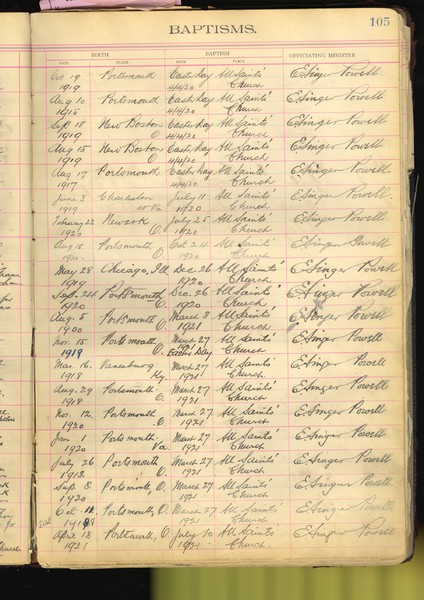 105
BAPTISMS.
BIRTH BAPTISM OFFICIATING MINISTER
DATE PLACE DATE PLACE
Oct 19 Portsmouth Easter Day All Saints' E Singer Powell
1919 4/4/20 Church
Aug 10 Portsmouth Easter Day All Saints' E Singer Powell
1915 4/4/20 Church
Sep 18 New Boston Easter Day All Saints' E Singer Powell
1919 O. 4/4/20 Church
Aug 15 New Boston Easter Day All Saints' E Singer Powell
1919 O. 4/4/20 Church
Aug 17 Portsmouth Easter Day All Saints' E Singer Powell
1917 4/4/20 Church
June 3 Charleston July 11 All Saints' E Singer Powell
1919 W Va 1920 Church
February 22 Newark July 25 All Saints' E Singer Powell
1920 O. 1920 Church
Aug 18 Portsmouth, Oct 24 All Saints' E Singer Powell
O. 1920 Church
May 28 Chicago, Ill Dec 26 All Saints' E Singer Powell
1919 1920 Church
Sep. 24 Portsmouth Dec. 26 All Saints' E Singer Powell
1920 O. 1920 Church
Aug. 5 Portsmouth March 3 All Saints' E Singer Powell
1900 O. 1921 Church
Nov. 15 Portsmouth March 27 All Saints' E Singer Powell
1919 O. 1921 Easter Day Church
Mar. 16 Vanceburg March 27 All Saints' E Singer Powell
1918 Ky. 1921 Church
Aug. 29 Portsmouth March 27 All Saints' E Singer Powell
1918 O. 1921 Church
Nov. 12 Portsmouth March 27 All Saints' E Singer Powell
1920 O. 1921 Church
Jan 1 Portsmouth March 27 All Saints' E Singer Powell
1920 Va. 1921 Church
July 26 Portsmouth March 27 All Saints' E Singer Powell
1913 O. 1921 Church
Sep. 8 Portsmouth, O. March 27 All Saints' E Singer Powell
1920 1921 Church
Oct Portsmouth, O. March 27 All Saints' E Singer Powell
1921 Church
April 13 Portsmouth, O. July 10 All Saints E Singer Powell
1921 1921 Church.